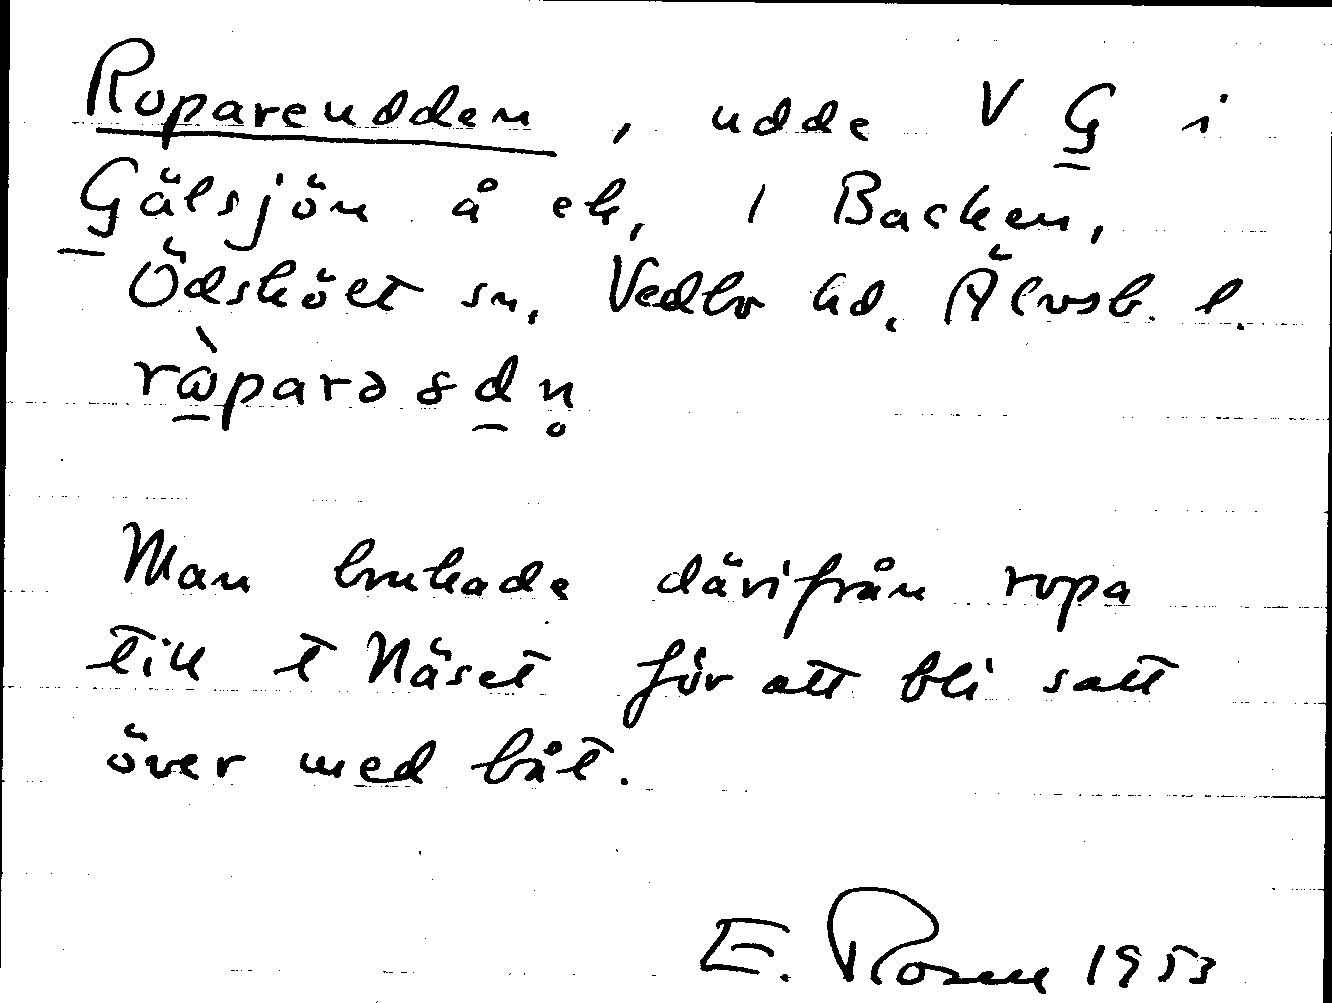 Ropareudden, udde V G i
Gälsjön å ek, 1 Backen,
Ödskölt sn, Vedbo hd, Älvsb. l.
Man brukade därifrån ropa
till t Näset för att bli satt
över med båt.
E. Rosen 1953